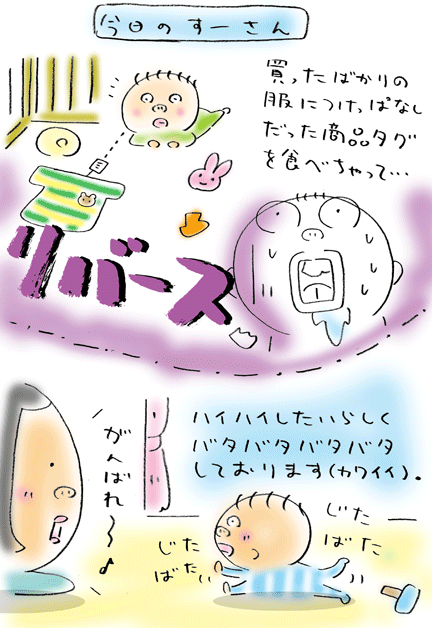 今日のすーさん
買ったばかりの
服につけっぱなし
だった商品タグ
を食べちゃって…
リバース
ハイハイしたいらしく
バタバタバタバタ
しております(カワイイ)。
がんばれ〜♪
じた
ばた
じた
ばたい